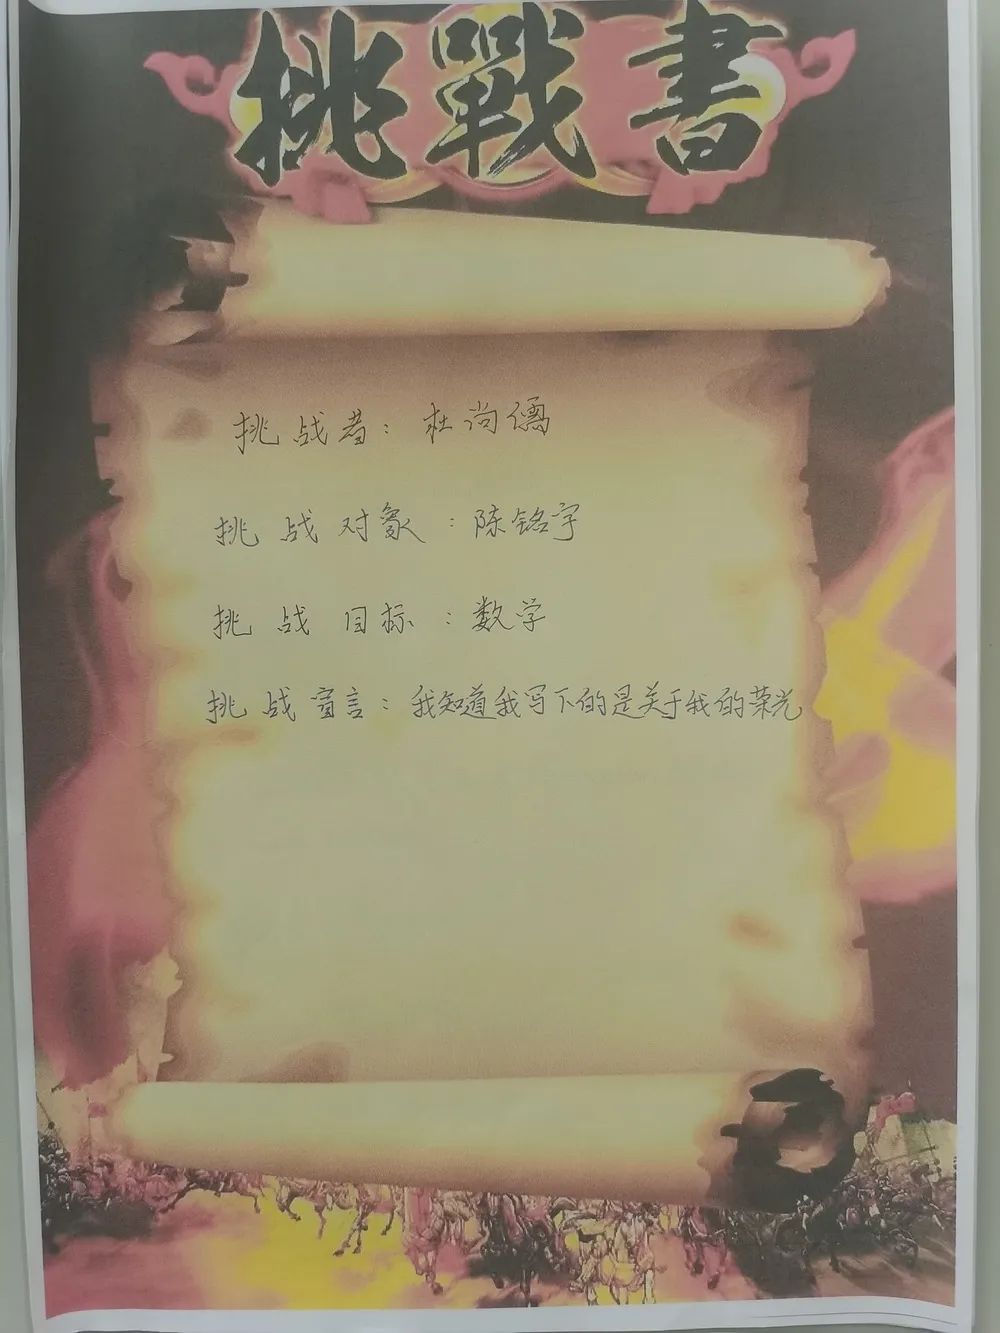 挑戰書
挑战者：杜尚儒
挑战对象：陈铭宇
挑战目标：数学
挑战宣言：我知道我写下的是关于我的荣光